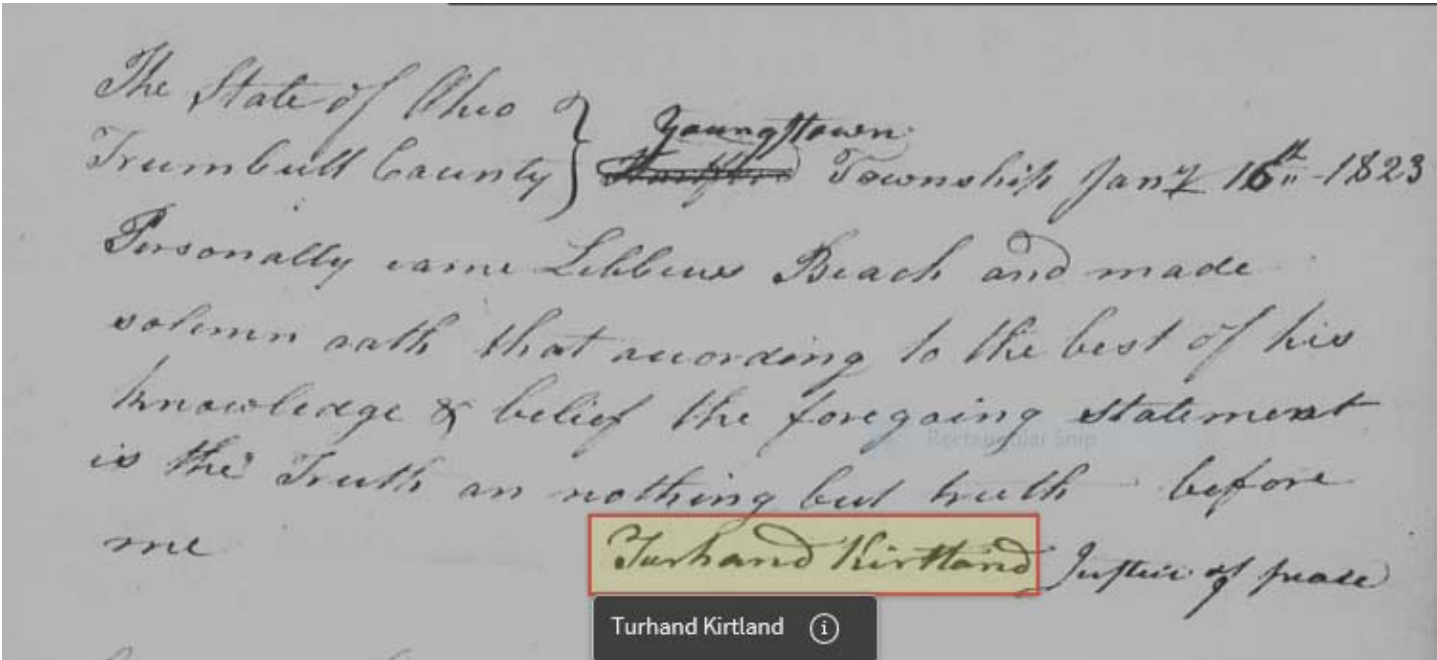 The State of Ohio }
Youngstown
Trumbull County } Township Jany 16th - 1823
Personally came Lebbeus Beach and made
solemn oath that according to the best of his
knowledge & belief the foregoing statement
Rectangular Snip
is the Truth an nothing but truth before
me Turhand Kirtland Justice of peace
Turhand Kirtland